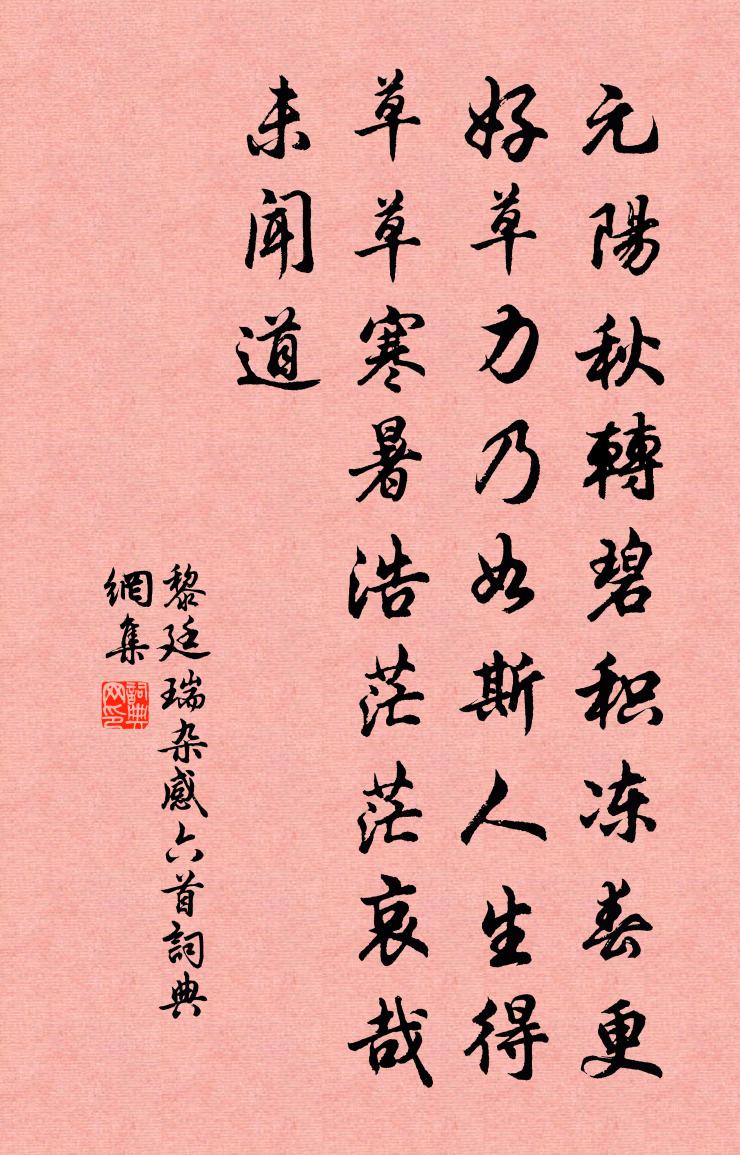 元陽秋轉碧积冻春更
好草力乃如斯人生得
草草寒暑浩茫茫哀哉
未聞道
黎廷瑞杂感六首詞典
網集
詞典
网印